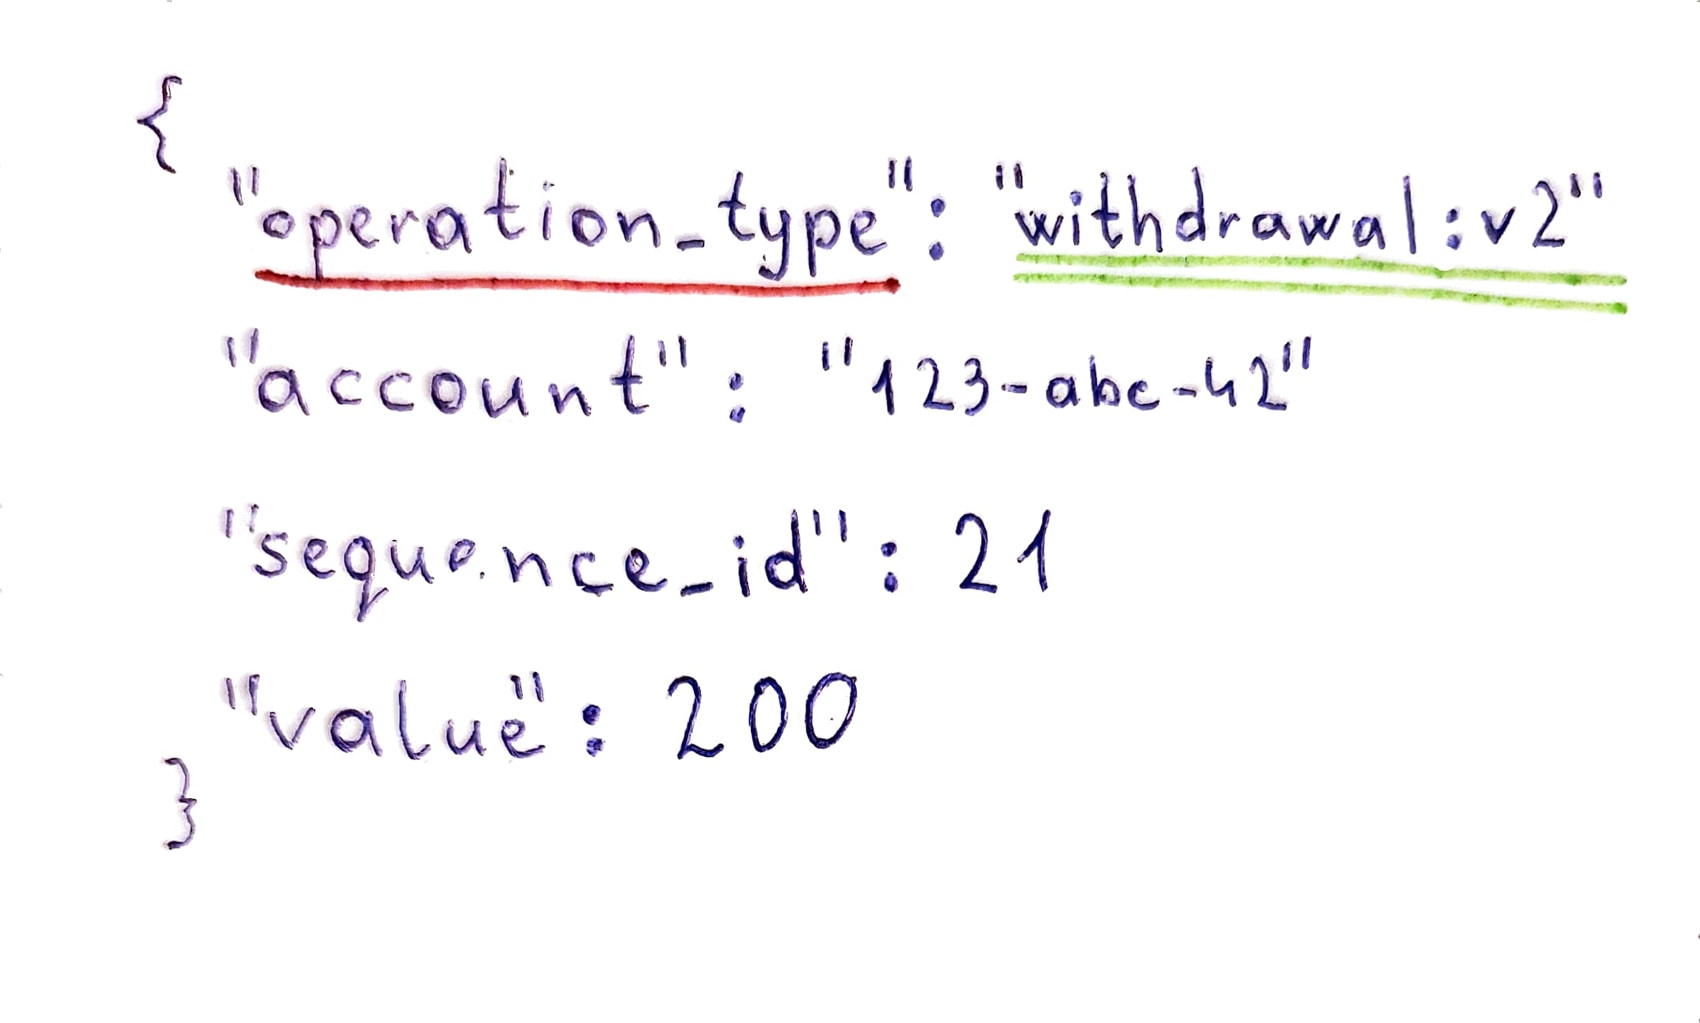 {
"operation_type": "withdrawal:v2"
"account": "123-abc-42"
"sequence_id": 21
"value": 200
}